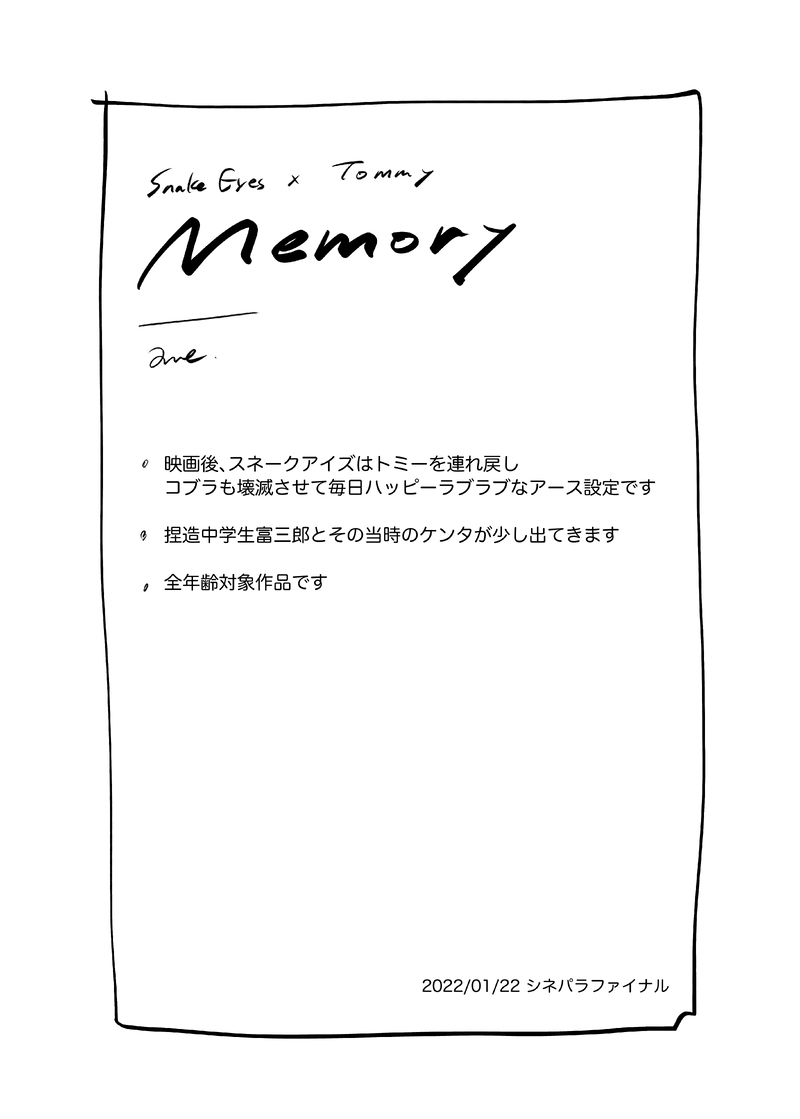 Snake Eyes × Tommy
Memory
映画後、スネークアイズはトミーを連れ戻し
コブラも壊滅させて毎日ハッピーラブラブなアース設定です
捏造中学生富三郎とその当時のケンタが少し出てきます
全年齢対象作品です
2022/01/22 シネパラファイナル